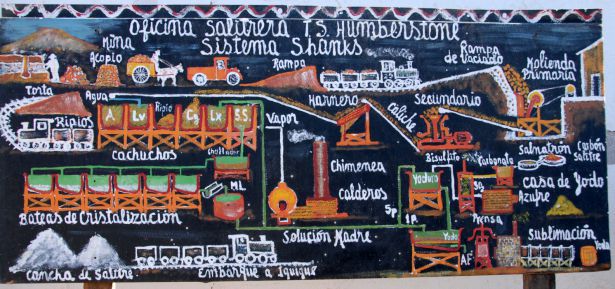 Oficina Salitrera T.S. Humberstone
Sistema Shanks
Mina
Acopio
Rampa
Rampa
de Vaciado
Molienda
Primaria
Torta
Agua
Ripio
A
Lv
Cg
Lx
S.S.
Vapor
Harnero
Caliche
Secundario
Ripios
Cachuchos
Chullador
Chimenea
Calderos
Bisulfato
Carbonato
Salnatrón
Carbón
Salitre
Casa de Yodo
Azufre
ML
Yoduro
SO
5p
1P
Prensa
Bateas de Cristalización
Solución Madre
Yodo
AF
Sublimación
Yodo
Cancha de Salitre
Embarque a Iquique